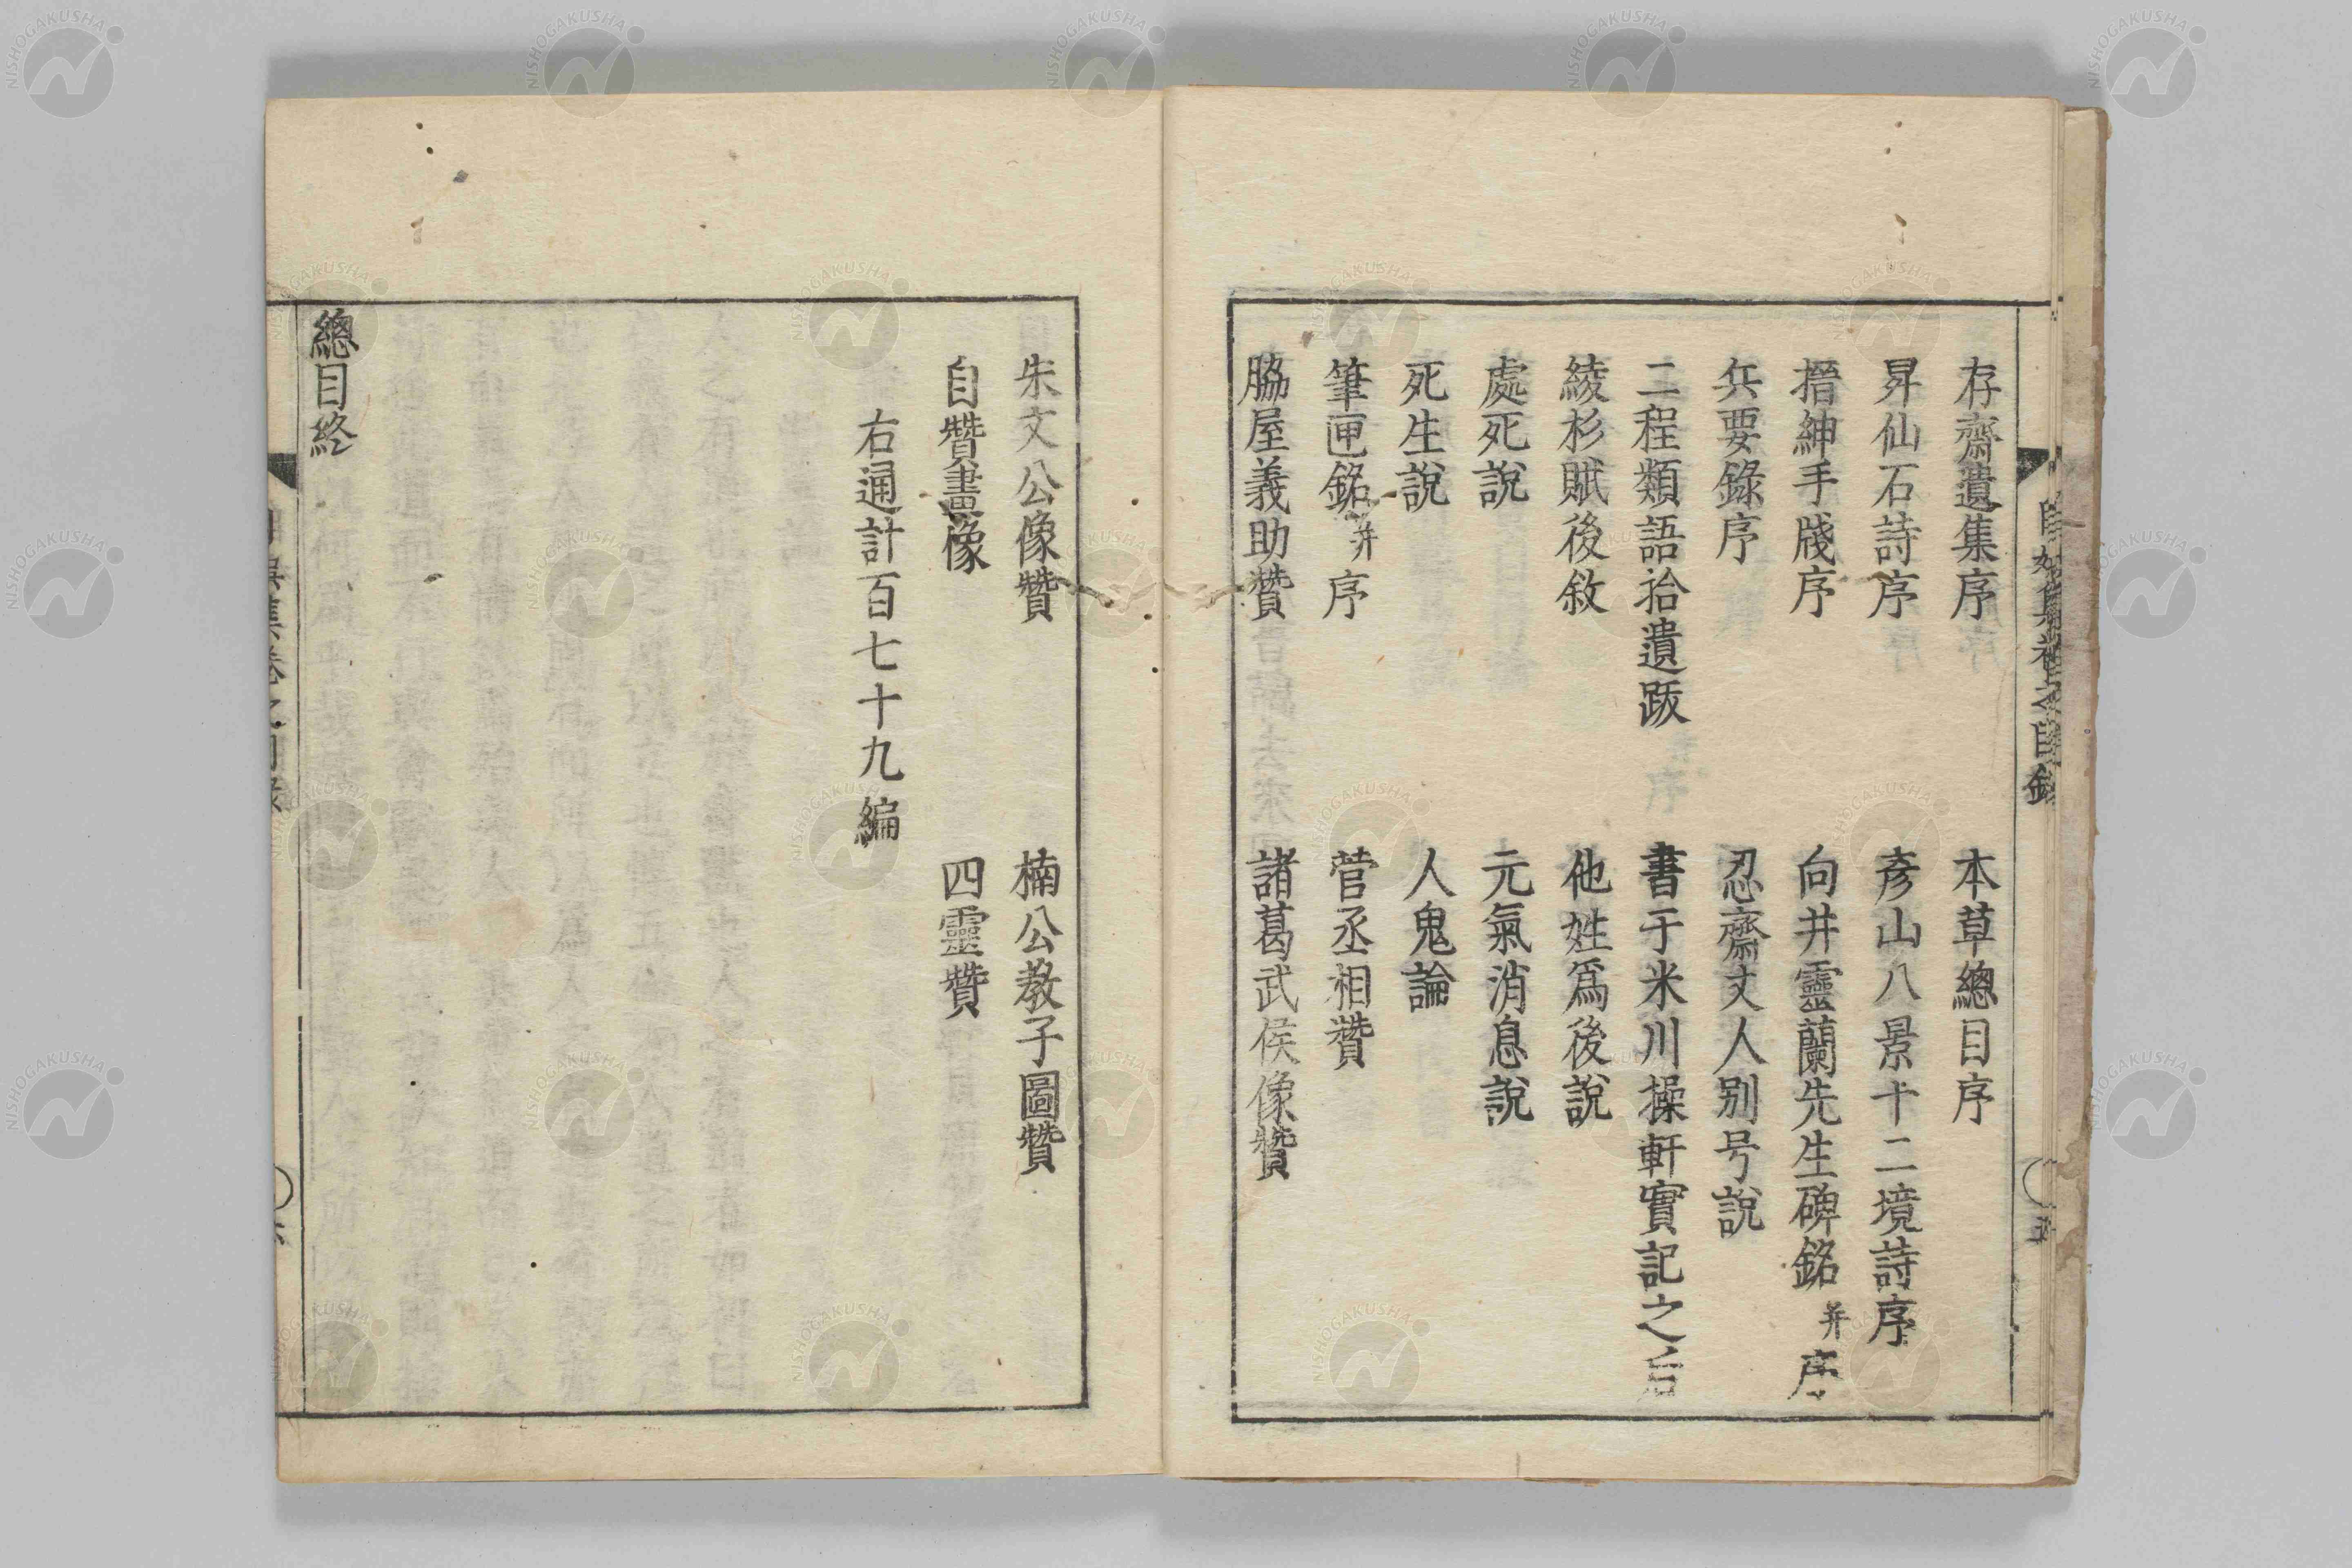 存齋遺集序　本草總目序
昇仙石詩序　彥山八景十二境詩序
搢紳手牋序　向井靈蘭先生碑銘并序
兵要錄序　忍齋丈人別号說
二程類語拾遺跋　書于米川操軒實記之后
綾杉賦後敘　他姓爲後說
處死說　元氣消息說
死生說　人鬼論
筆匣銘并序　菅丞相贊
脇屋義助贊　諸葛武侯像贊
朱文公像贊　楠公教子圖贊
自贊畫像　四靈贊
右通計百七十九編
總目終
NISHOGAKUSHA